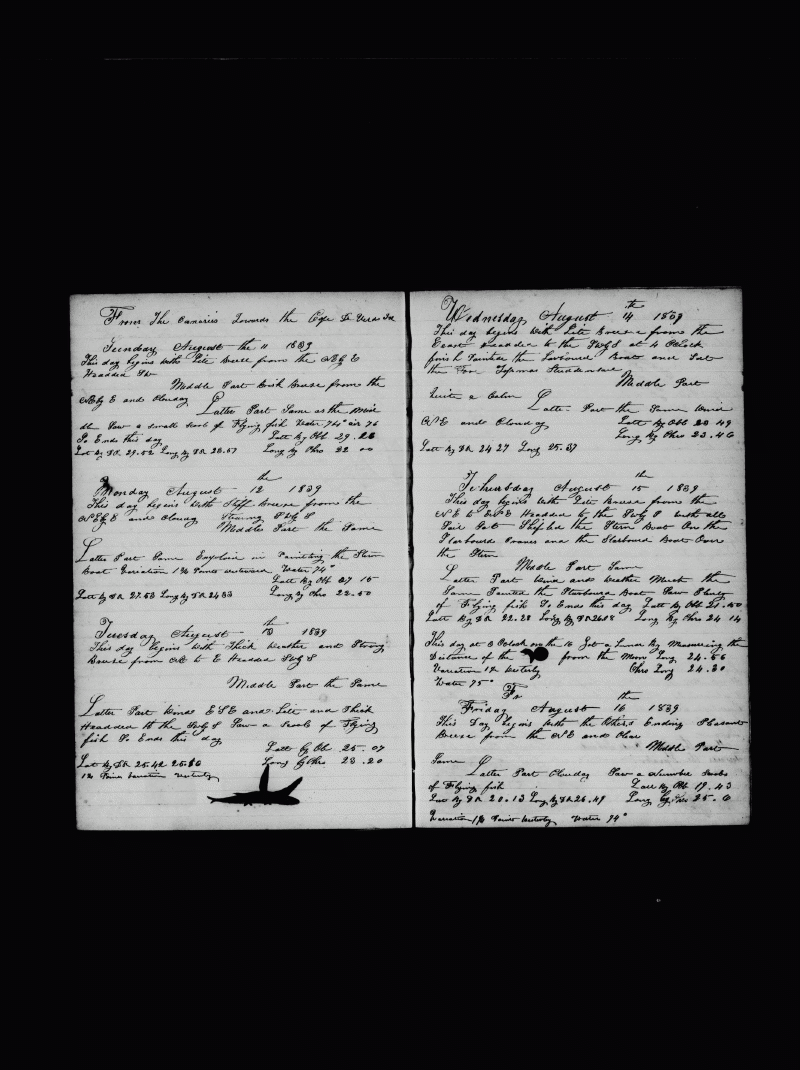 From The Canaries Towards the Cape De Verds Isl
Sunday August the 11 1839
This day begins with Lite breese from the NEbyE
Headded SW
Middle Part Brisk breese from the
NEbyE and Clouday
Latter Part Same as the Mid
dle Saw a small scool of Flying fish Water 74° air 76
So Ends this day Latt By Ob 29.28
Latt By DR 29.52 Long By DR 23.57 Long By Chro 22 00
th
Monday August 12 1839
This day begins with Stiff breese from the
NEbyE and Clouday Stearing SWbyS
Middle Part the Same
Latter Part Same Employed in Painting the Stern
Boat Variation 1¾ Points westward Water 74°
Latt By Ob 27 15
Latt By DR 27.53 Long by DR 24 33 Long By Chro 22.50
th
Tuesday August 13 1839
This day begins with Thick Weather and Strong
Breese from NE to E Headded SWbyS
Middle Part the Same
Latter Part Winds ESE and Lite and Thick
Headded to the SWbyS Saw a Scool of Flying
fish So Ends this day
Latt by Ob 25.07
Latt By DR 25.42 25.26 Long by Chro 23.20
1¾ Point Variation Westerly
th
Wednesday August 14 1839
This day begins with Lite Breese from the
East Headded to the SWbyS at 4 OClock
finish Painting the Larboard Boat and Set
the For Topmas Studdensail
Middle Part
Quite a Calm
Latter Part the Same Wind
NE and Clouday Latt By Ob 23 49
Long By Chro 23.46
Latt By DR 24 27 Long 25.37
th
Thursday August 15 1839
This day begins with Lite Breese from the
NE to ENE Headded to the SWbyS with all
Sail Set Shifted the Stern Boat On the
Starboard Cranes and the Starboard Boat Over
the Stern
Middle Part Same
Latter Part Wind and Weather Much the
Same Painted the Starboard Boat Saw Plenty
of Flying fish So Ends this day Latt By Ob 21.50
Latt By DR 22.28 Long By DR 26 18 Long By Chro 24 14
This day at 3 Oclock on the 16 Got a Lunar By Measureing the
Distance of the from the Moon Long 24.56
Variation 1¾ Westerly Chro Long 24.30
Water 75°
Fr
th
Friday August 16 1839
This Day begins with the Others Ending Pleasant
Breese from the NE and Clear
Middle Part
Same
Latter Part Clouday Saw a Number Scools
of Flying fish Latt By Ob 19.43
Latt By DR 20.13 Long By DR 26.49 Long by Chro 25.6
Variation 1¾ Point Westerly Water 74°